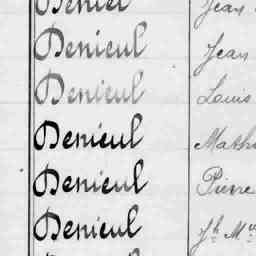 Deniel Jean
Denieul Jean
Denieul Louis
Denieul Math
Denieul Pierre
Denieul Jh M